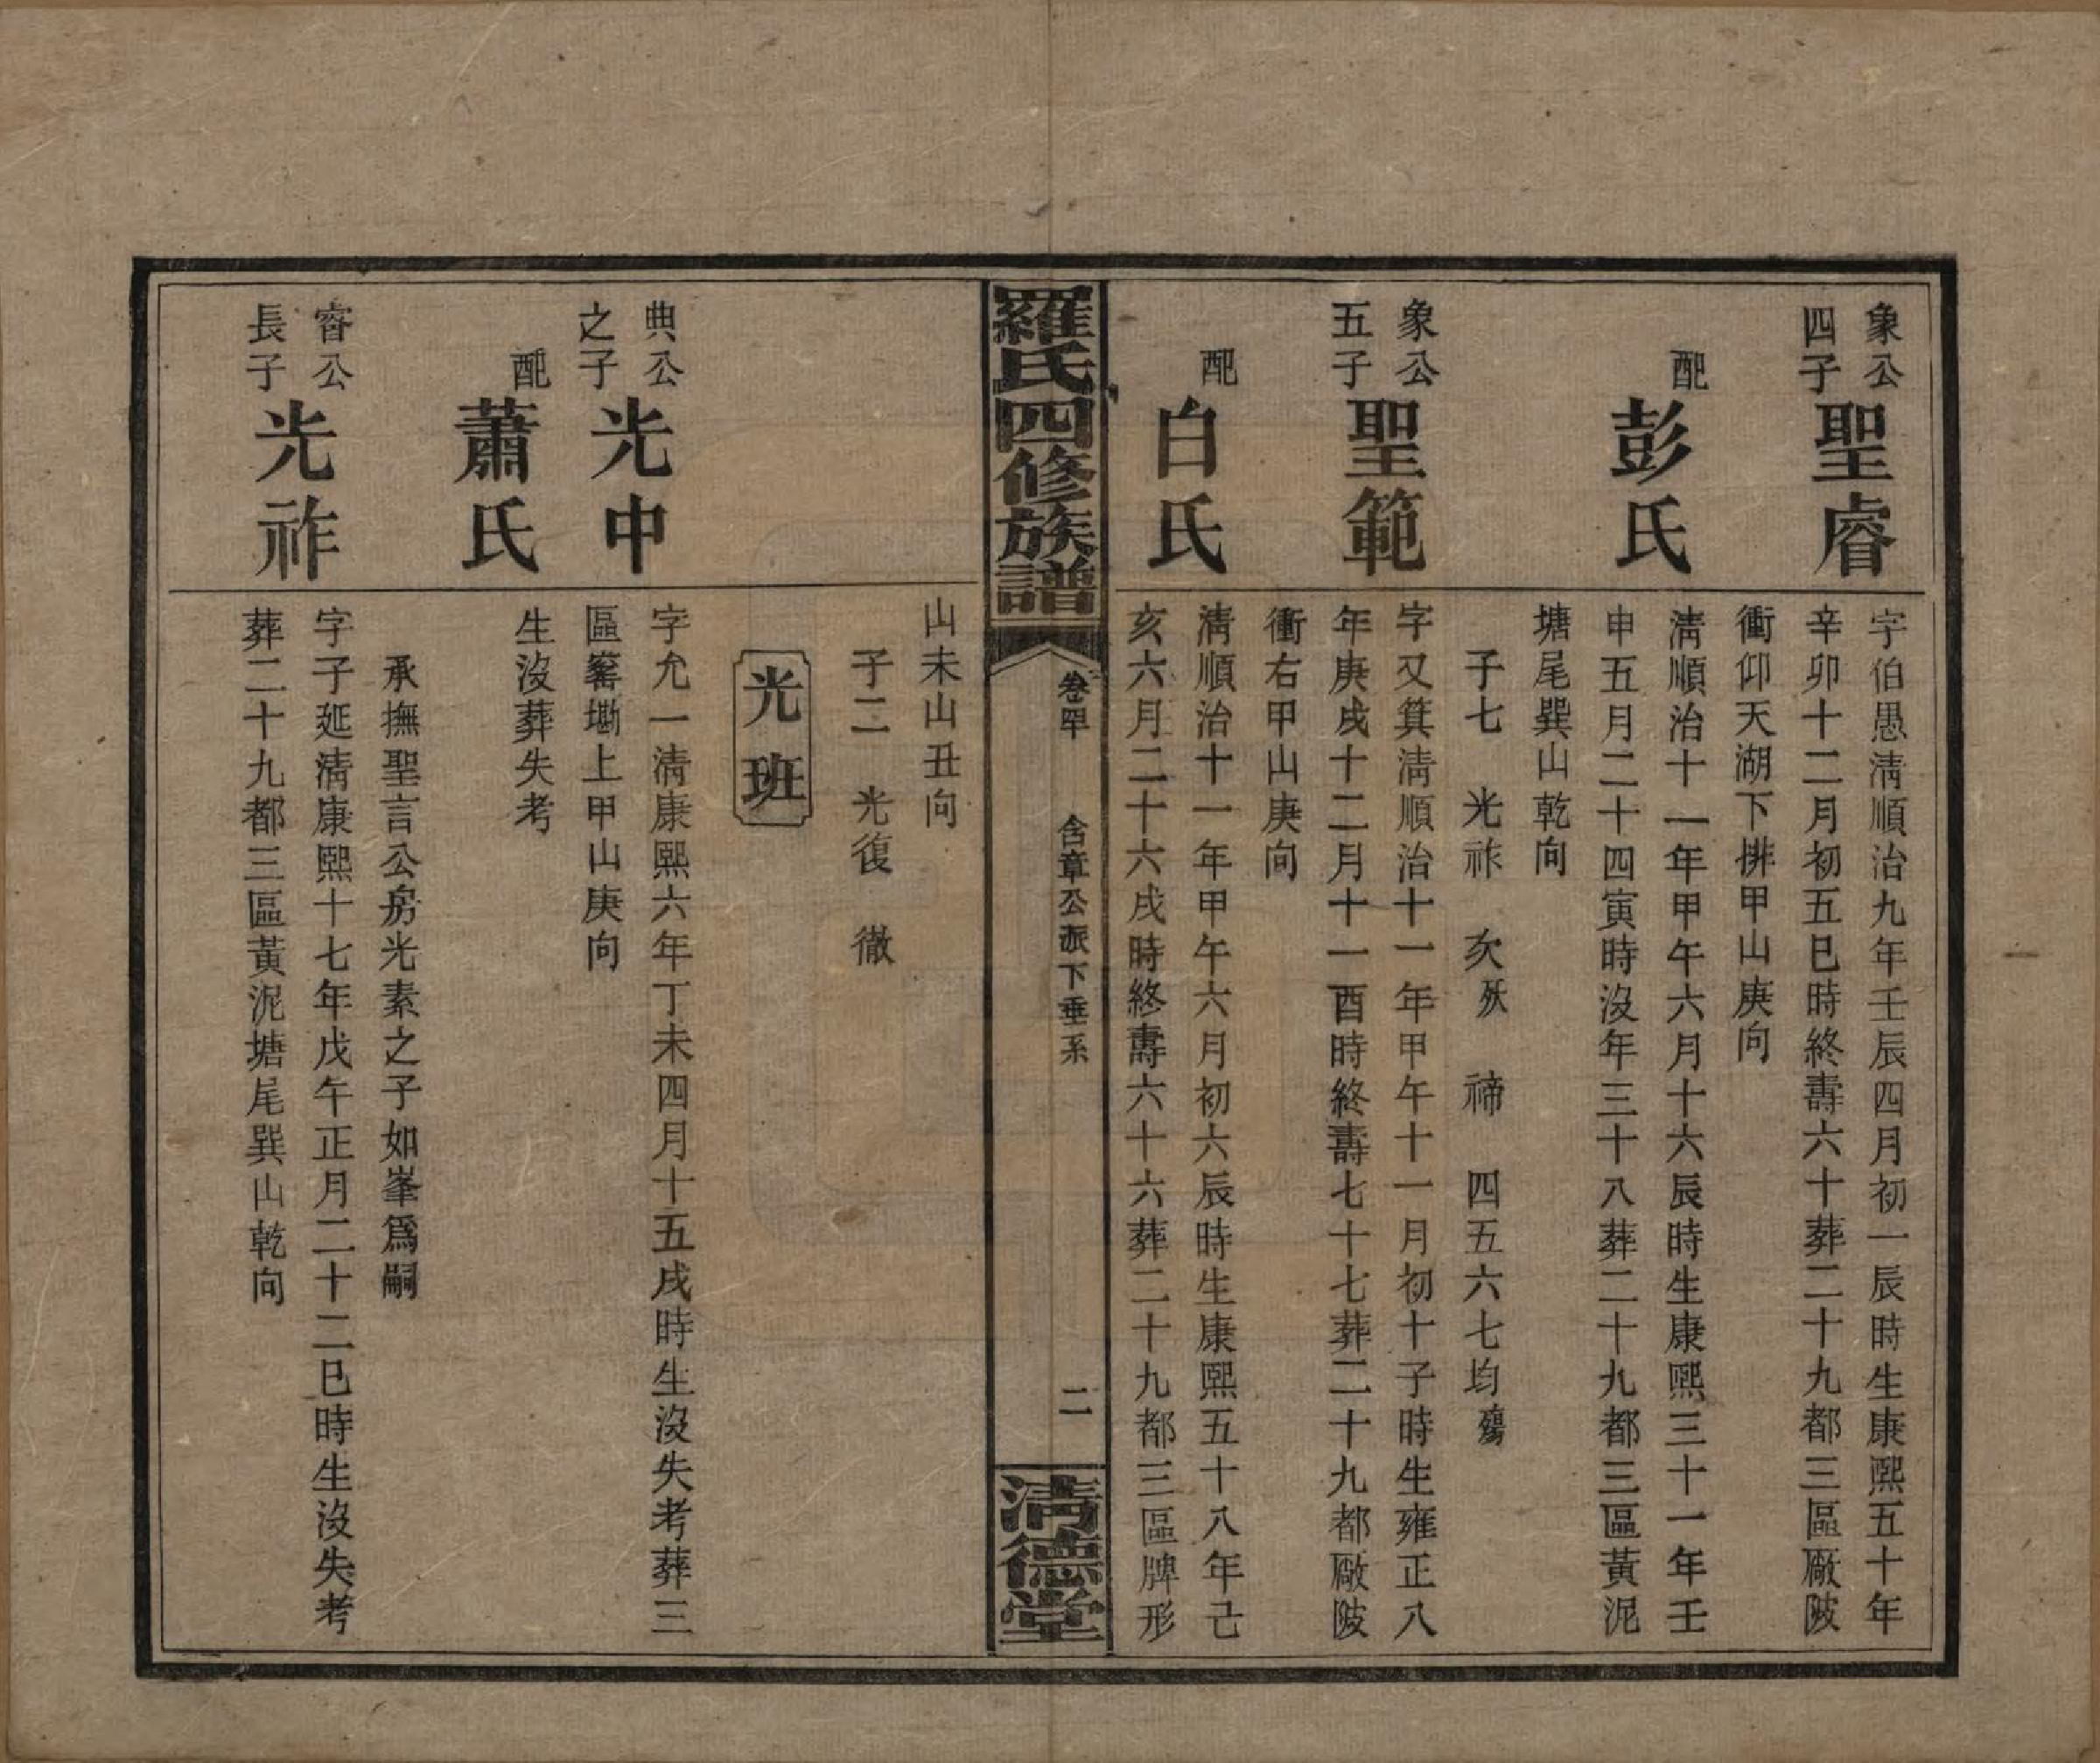 象公
四子
聖睿
字伯愚淸順治九年壬辰四月初一辰時生康熙五十年
辛卯十二月初五巳時終壽六十葬二十九都三區厰陂
衝仰天湖下排甲山庚向
配
彭氏
淸順治十一年甲午六月十六辰時生康熙三十一年壬
申五月二十四寅時沒年三十八葬二十九都三區黃泥
塘尾巽山乾向
子七 光祚 次殀 禘 四五六七均殤
象公
五子
聖範
字又箕淸順治十一年甲午十一月初十子時生雍正八
年庚戌十二月十一酉時終壽七十七葬二十九都厰陂
衝右甲山庚向
配
白氏
淸順治十一年甲午六月初六辰時生康熙五十八年己
亥六月二十六戌時終壽六十六葬二十九都三區牌形
羅氏四修族譜
卷四十 含章公派下垂系
二
淸德堂
山未山丑向
子二 光復 徹
光班
典公
之子
光中
字允一淸康熙六年丁未四月十五戌時生沒失考葬三
區窰塅上甲山庚向
配
蕭氏
生沒葬失考
承撫聖言公房光素之子如峯爲嗣
睿公
長子
光祚
字子延淸康熙十七年戊午正月二十二巳時生沒失考
葬二十九都三區黃泥塘尾巽山乾向